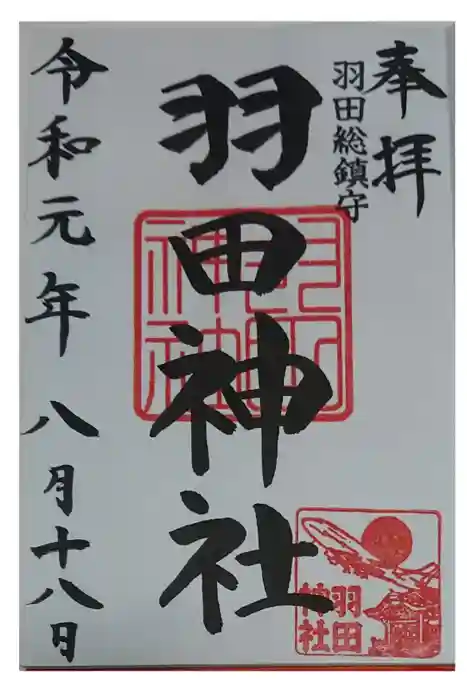 奉拝
羽田総鎮守
羽田神社
令和元年八月十八日
羽田神社
羽田
神社